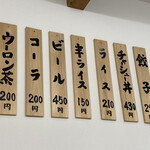 餃子
チャーシュー丼
430円
ライス
210円
半ライス
150円
ビール
450円
コーラ
200円
ウーロン茶
200円